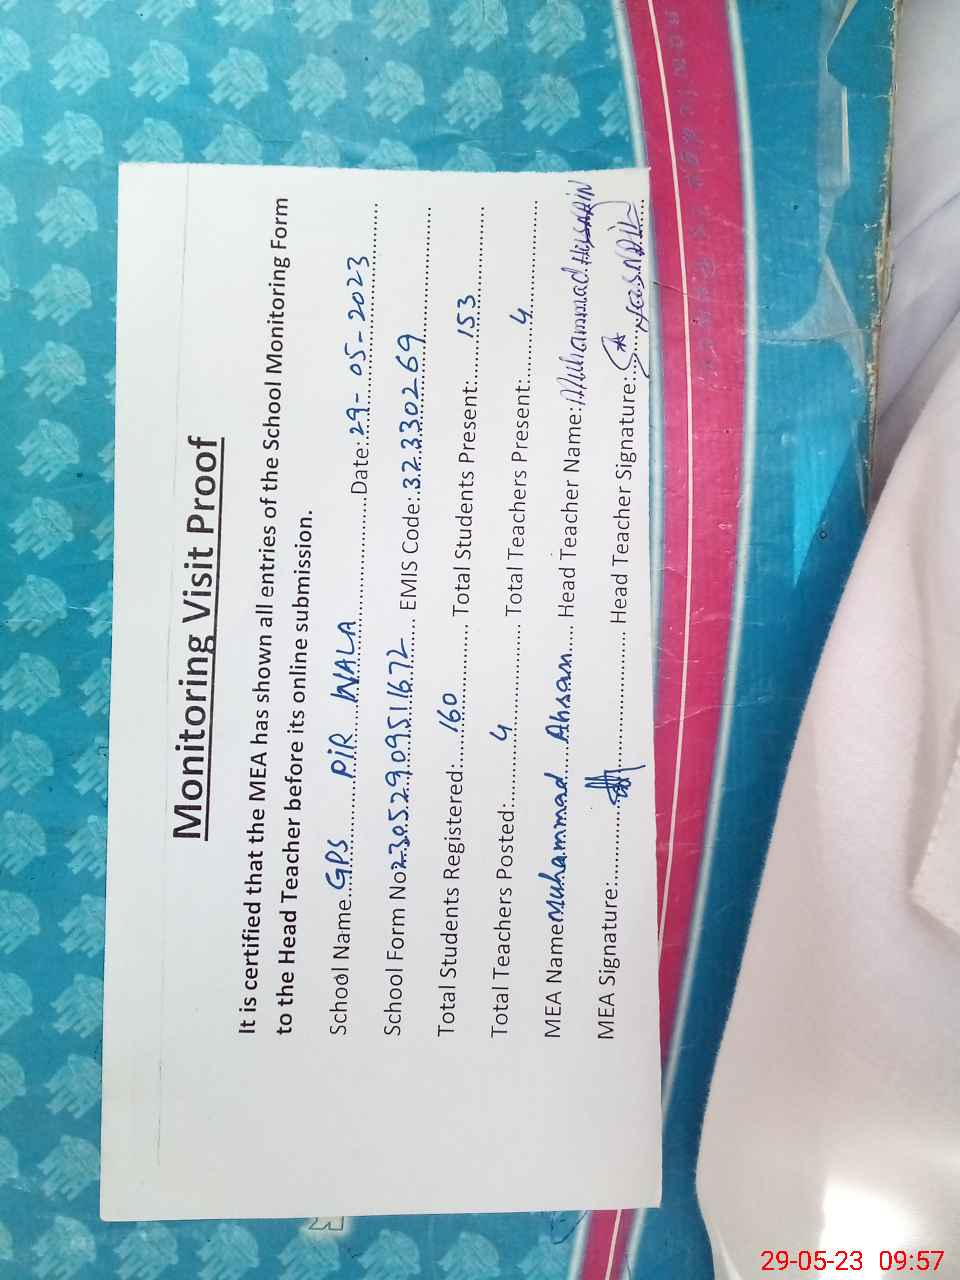 Monitoring Visit Proof
It is certified that the MEA has shown all entries of the School Monitoring Form
to the Head Teacher before its online submission.
School Name. GPS PIR WALA Date: 29-05-2023
School Form No 2305290951672 EMIS Code: 32330269
Total Students Registered: 160 Total Students Present: 153
Total Teachers Posted: 4 Total Teachers Present: 4
MEA Name Muhammad Ahsan Head Teacher Name: Muhammad Hussain
MEA Signature: Head Teacher Signature:
29-05-23 09:57